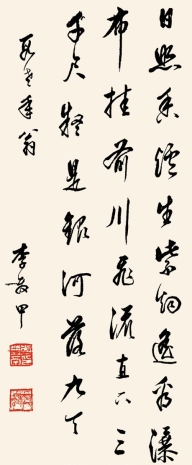 日照香炉生紫烟遥看瀑
布挂前川飛流直下三
千尺疑是銀河落九天
翁
李 甲